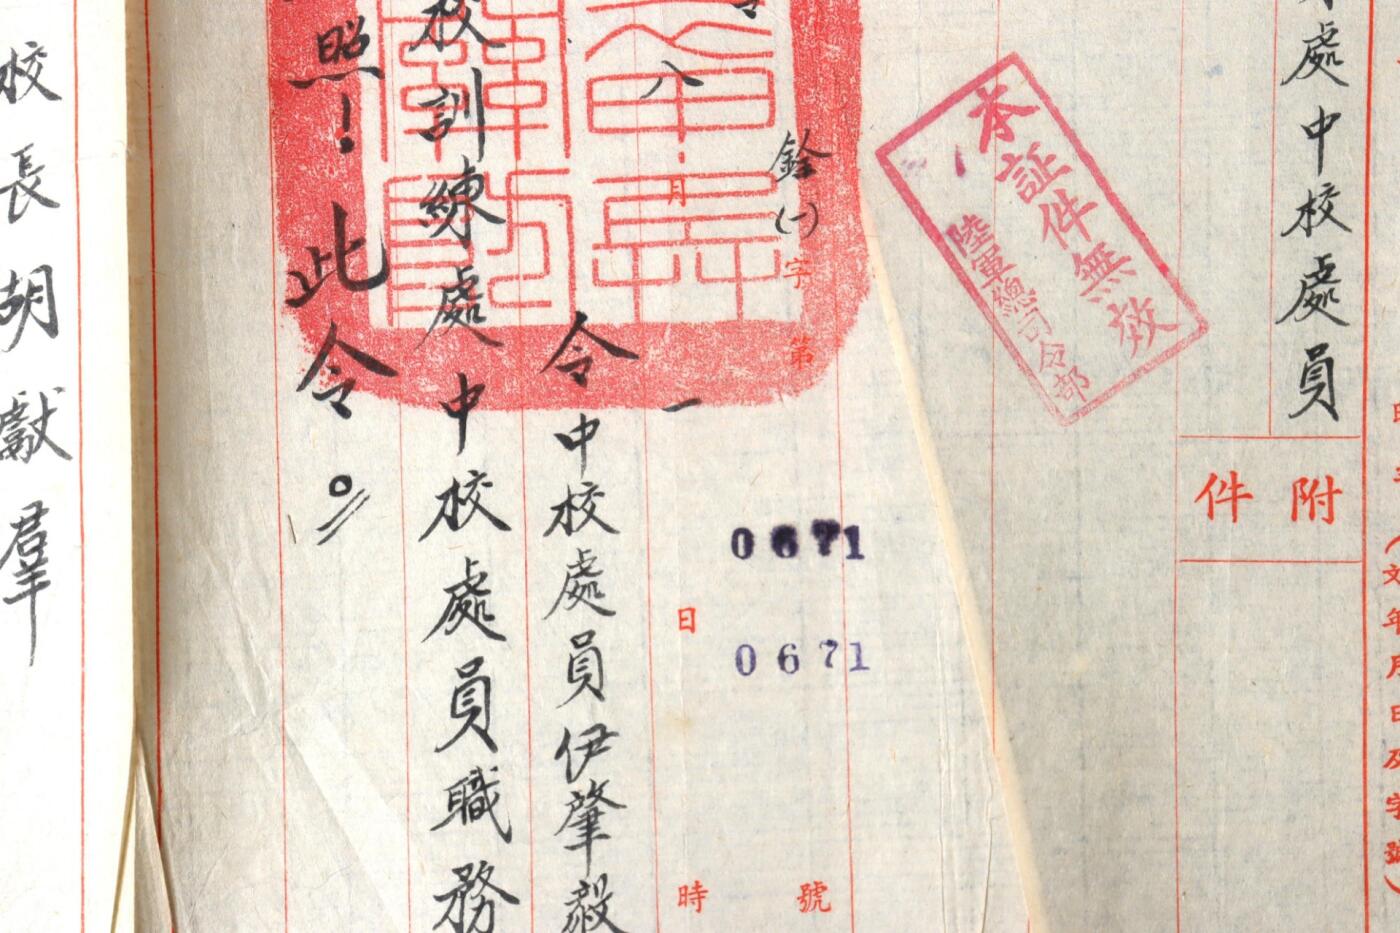 處中校處員
附件
(文年月日及字號)
本証件無效
陸軍總司令部
銓(一)字第
號
0671
0671
八月一日
時
令中校處員伊肇毅
校訓練處中校處員職務
照！此令。
校長胡獻羣